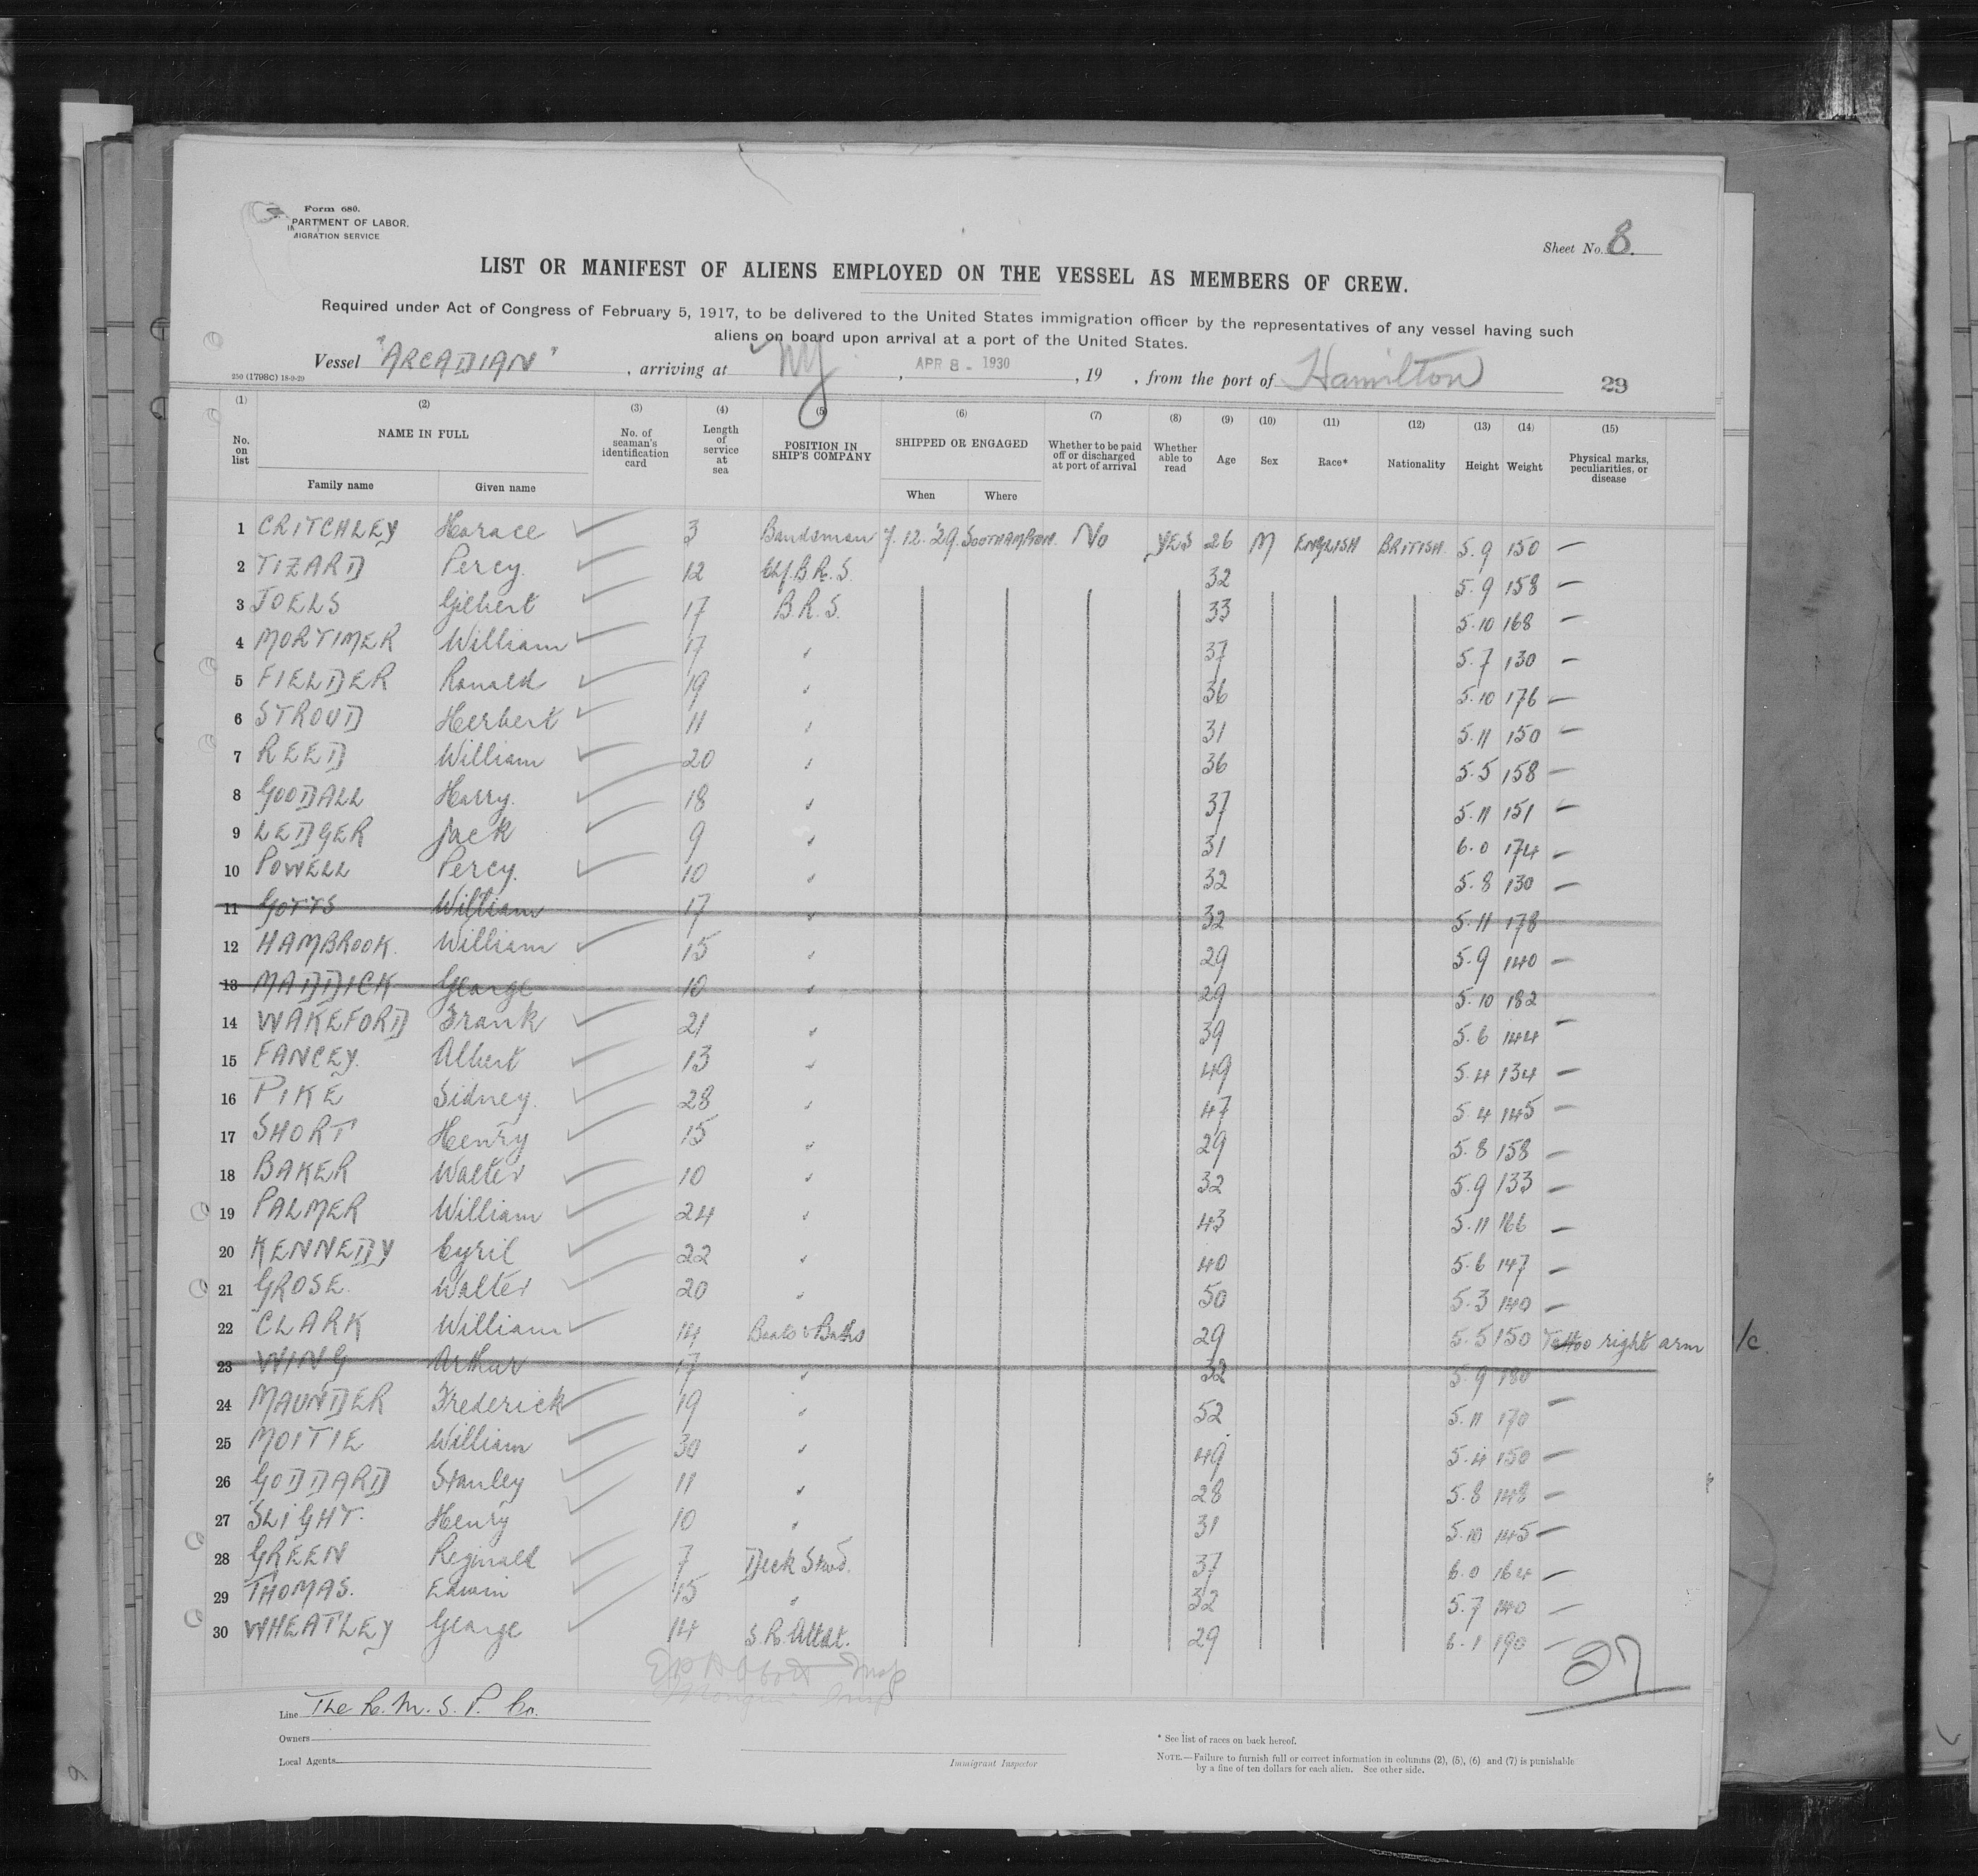 Form 680.
PARTMENT OF LABOR,
MIGRATION SERVICE
Sheet No. 8.
LIST OR MANIFEST OF ALIENS EMPLOYED ON THE VESSEL AS MEMBERS OF CREW.
Required under Act of Congress of February 5, 1917, to be delivered to the United States immigration officer by the representatives of any vessel having such
aliens on board upon arrival at a port of the United States.
Vessel "ARCADIAN", arriving at NY, APR 8 - 1930, 19 , from the port of Hamilton
250 (1798C) 18-9-29
29
(1) (2) (3) (4) (5) (6) (7) (8) (9) (10) (11) (12) (13) (14) (15)
No. on list NAME IN FULL No. of seaman's identification card Length of service at sea POSITION IN SHIP'S COMPANY SHIPPED OR ENGAGED Whether to be paid off or discharged at port of arrival Whether able to read Age Sex Race* Nationality Height Weight Physical marks, peculiarities, or disease
Family name Given name When Where
1 CRITCHLEY Horace 3 Bandsman 7.12.'29. SOUTHAMPTON. No YES 26 M ENGLISH BRITISH 5.9 150 —
2 TIZARD Percy. 12 Chf. B.R.S. 32 5.9 158 —
3 JOELS Gilbert 17 B.R.S. 33 5.10 168 —
4 MORTIMER William 17 " 37 5.7 130 —
5 FIELDER Ronald 19 " 36 5.10 176 —
6 STROUD Herbert 11 " 31 5.11 150 —
7 REED William 20 " 36 5.5 158 —
8 GOODALL Harry. 18 " 37 5.11 151 —
9 LEDGER Jack 9 " 31 6.0 174 —
10 POWELL Percy. 10 " 32 5.8 130 —
11 GOTTS William 17 " 32 5.11 178
12 HAMBROOK. William 15 " 29 5.9 140 —
13 MADDICK George 10 " 29 5.10 182
14 WAKEFORD Frank 21 " 39 5.6 144 —
15 FANCEY. Albert 13 " 49 5.4 134 —
16 PIKE Sidney. 28 " 47 5.4 145 —
17 SHORT Henry 15 " 29 5.8 158 —
18 BAKER Walter 10 " 32 5.9 133 —
19 PALMER William 24 " 43 5.11 166 —
20 KENNEDY Cyril 22 " 40 5.6 147 —
21 GROSE. Walter 20 " 50 5.3 140 —
22 CLARK William 14 Boots & Baths 29 5.5 150 Tattoo right arm /c.
23 WING Arthur 17 " 32 5.9 180
24 MAUNDER Frederick 19 " 52 5.11 170 —
25 MOITIE William 30 " 49 5.4 150 —
26 GODDARD Stanley 11 " 28 5.8 148 —
27 SLIGHT. Henry 10 " 31 5.10 145 —
28 GREEN Reginald 7 Deck Stwd. 37 6.0 164 —
29 THOMAS. Edwin 15 " 32 5.7 140 —
30 WHEATLEY George 14 S.R. Attdt. 29 6.1 190 —
27
Line The R. M. S. P. Co.
Owners
Local Agents
Immigrant Inspector
* See list of races on back hereof.
NOTE.—Failure to furnish full or correct information in columns (2), (5), (6) and (7) is punishable
by a fine of ten dollars for each alien. See other side.